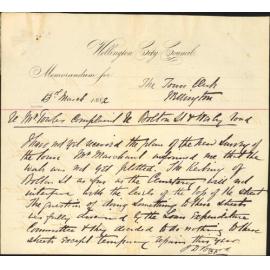 Wellington City Council
Memorandum for
The Town Clerk
13th March 1892 Wellington
Re Mr Complaint re Bolton St & Wesley Road
I have not yet received the plan of the new Survey of
the town Mr Marchant informed me that the
work was not yet plotted. The Kerbing of
Bolton St as far as the Cemetery will not
interfere with the levels of the top of the street
The question of doing something to these streets
was fully discussed by the Loan Expenditure
Committee & they decided to do nothing to these
streets except temporary repairs this year